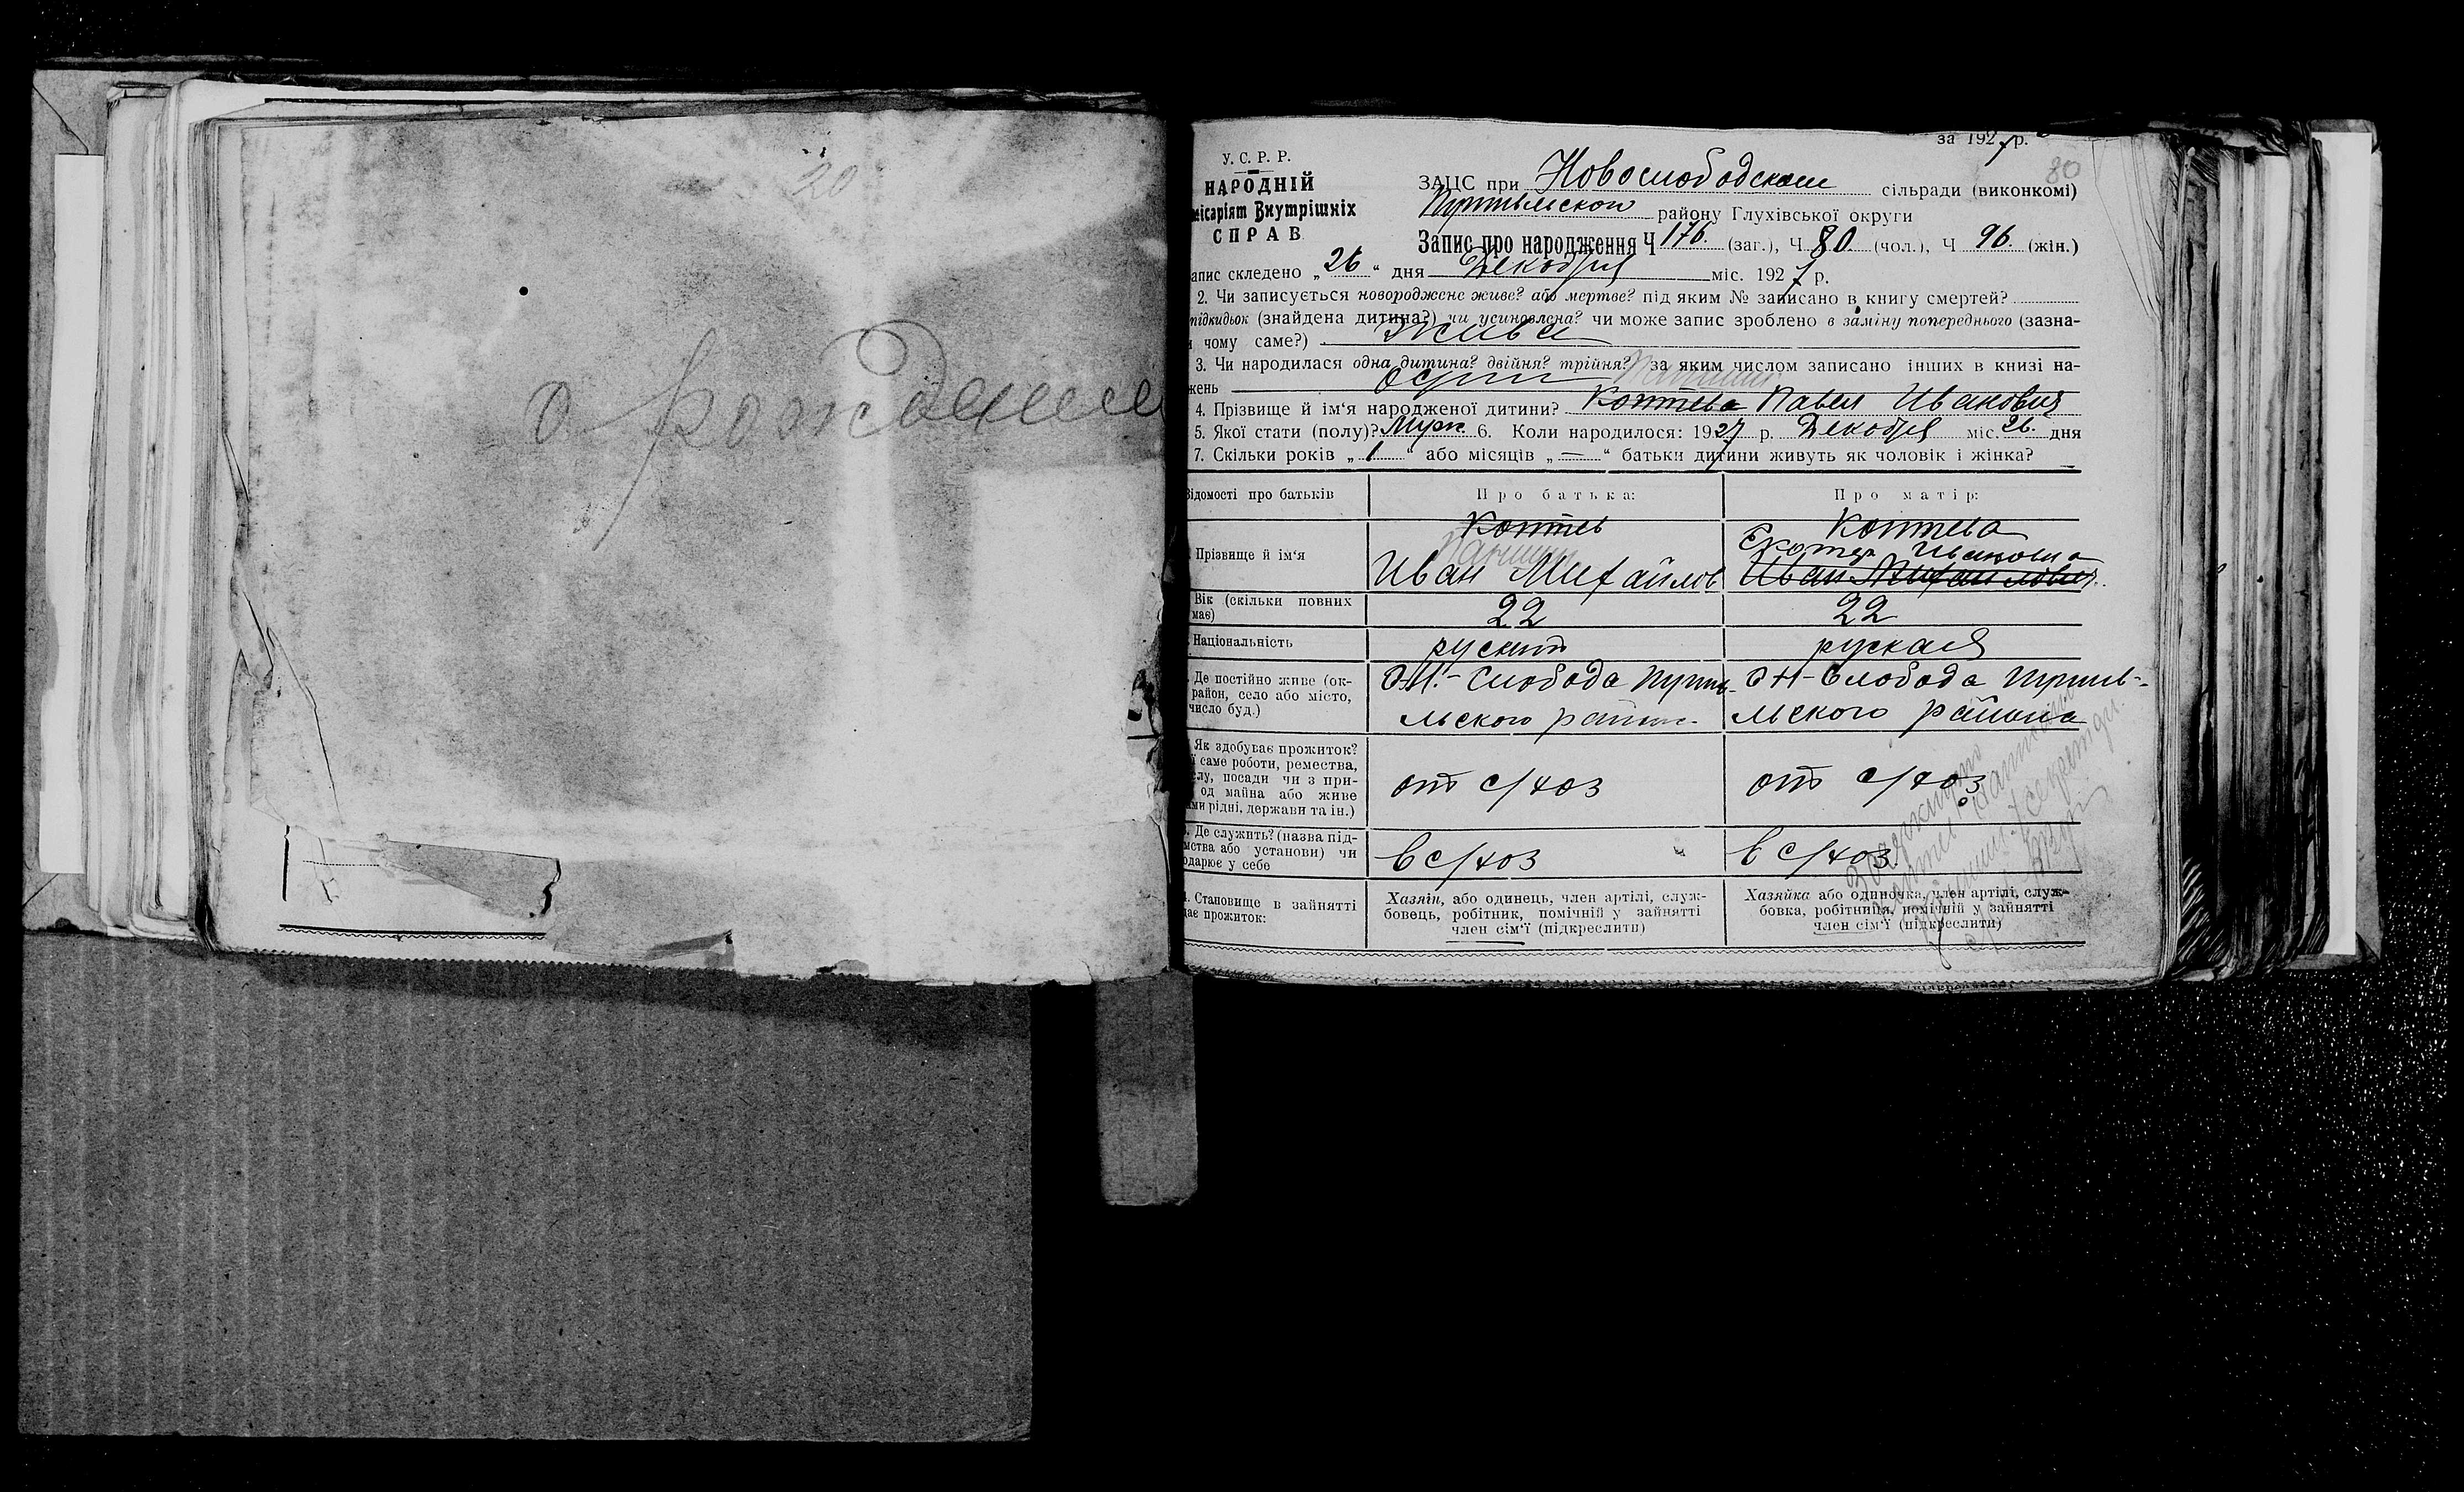 20
о рождении
за 1927 р.
80
У. С. Р. Р.
НАРОДНІЙ
місаріят Внутрішніх
СПРАВ
ЗАЦС при Новослободском сільради (виконкомі)
Путивльском району Глухівської округи
Запис про народження Ч 176. (заг.), Ч 80. (чол.), Ч 96. (жін.)
апис складено „26“ дня Декабря міс. 1927 р.
2. Чи записується новороджене живе? або мертве? під яким № записано в книгу смертей?
підкидьок (знайдена дитина?) чи усиновлена? чи може запис зроблено в заміну попереднього (зазна-
и чому саме?) Жива
3. Чи народилася одна дитина? двійня? трійня? за яким числом записано інших в книзі на-
жень Один
4. Прізвище й ім'я народженої дитини? Коптева Павел Иванович
5. Якої стати (полу)? Муж. 6. Коли народилося: 1927 р. Декабря міс. 26. дня
7. Скільки років „1“ або місяців „—“ батьки дитини живуть як чоловік і жінка?
Відомості про батьків
Про батька:
Про матір:
Прізвище й ім'я
Коптев
Паншин
Иван Михайлов
Коптева
Екатер Ивановна
Иван Михайлович
Вік (скільки повних
має)
22
22
Національність
руский
руская
Де постійно живе (ок-
район, село або місто,
число буд.)
Н-Слобода Путив-
льского район
Н-Слобода Путив-
льского района
Як здобуває прожиток?
ї саме роботи, ремества,
слу, посади чи з при-
од майна або живе
ами рідні, держави та ін.)
от с/хоз
от с/хоз
Де служить? (назва під-
мства або установи) чи
одарює у себе
в с/хоз
в с/хоз.
4. Становище в зайнятті
дає прожиток:
Хазяїн, або одинець, член артілі, служ-
бовець, робітник, помічній у зайнятті
член сім'ї (підкреслити)
Хазяйка або одиночка, член артілі, служ-
бовка, робітниця, помічній у зайнятті
член сім'ї (підкреслити)